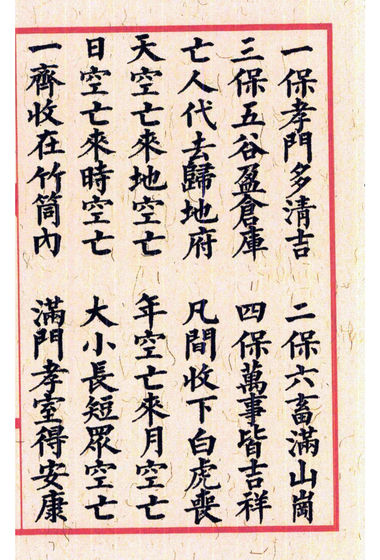 一保孝門多清吉　二保六畜滿山崗
三保五谷盈倉庫　四保萬事皆吉祥
亡人代去歸地府　凡間收下白虎喪
天空亡來地空亡　年空亡來月空亡
日空亡來時空亡　大小長短眾空亡
一齊收在竹筒內　滿門孝室得安康